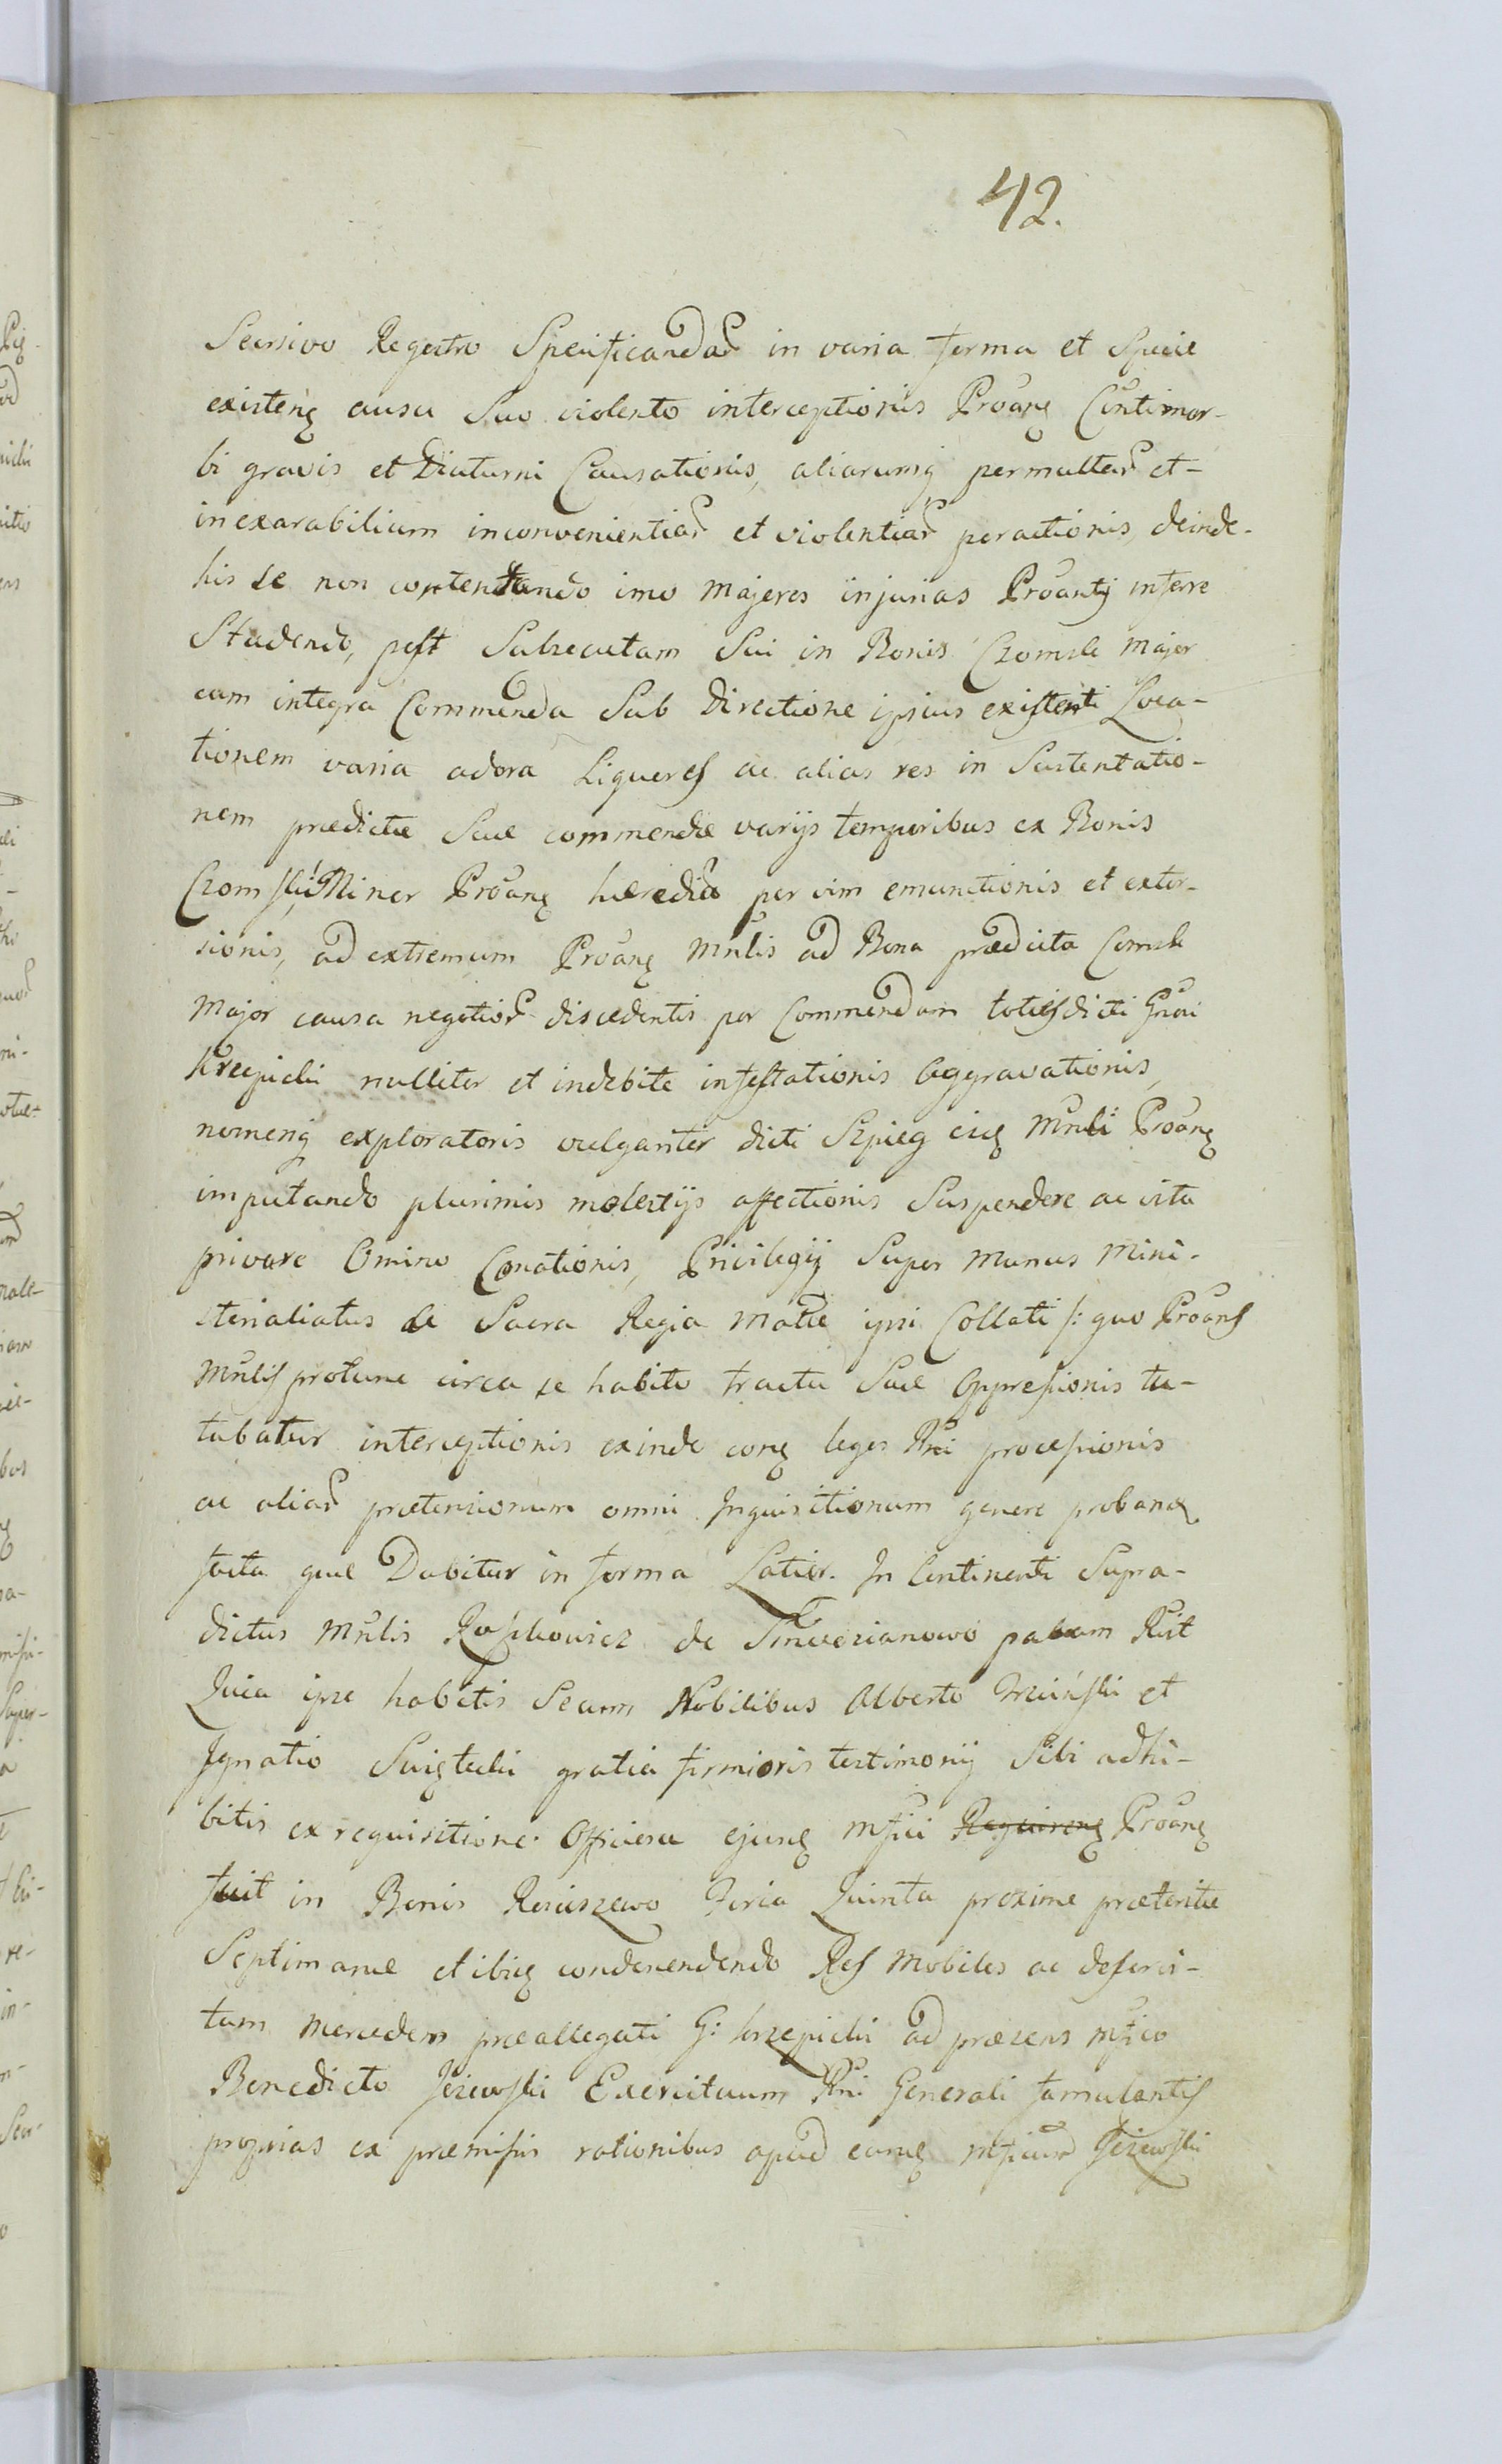 42.
Seorsivo Regestro Specificandar in varia forma et Specie
existens ausu Suo violento interceptionis Proans Contimor-
bi gravis et Diuturni Causationis, aliarumq permultar et-
inexarabilium inconvenientiar et violentiar peractionis, deinde-
his se non contentando imo majores injurias Proantj inferre
Studendo, post Subsecutam Sui in Bonis Chomsk Major
cum integra Commenda Sub Directione ipsius existenti Loca-
tionem varia adora Liquores ac alias res in Sustentatio-
nem prædictæ Suæ commendæ varijs temporibus ex Bonis
Minor Proang hæredia per vim emunctionis et extor-
sionis, ad extremum Proang Mnlis ad Bona prædicta
Major causa negotior discedentis per Commendam totiesdicti Gnoi
Krzepicki nulliter et indebite infestationis Aggravationis,
nomenq exploratoris vulganter dicti Szpieg Mnli Proang
imputando plurimis molestijs affectionis Suspendere ac vita
privare Omino Conationis, Privilegij Super Munus Mini-
sterialiatus de Sacra Regia Matte ipsi Collati /: quo Proans
Mnlis protunc circa se habito tractu Suæ Oppressionis tu-
tabatur interceptionis exinde cong leges Rni processionis
ac aliar prætensionum omni Inquisitionum genere proband
facta quæ Dabitur in forma Latior. In Continenti Supra-
dictus Mnlis de palam Rcit
Quia ipse habitis Secum Nobilibus Alberto et
Ignatio gratia firmioris testimonij Sibi adhi-
bitis ex requisitione Officiosa ejusq Mfici Requirens Proang
fuit in Bonis Feria Quinta proxime præteritæ
Septimanæ et ibiq condescendendo Res Mobiles ac deservi-
tam Mercedem præallegati G: Krzepicki ad præsens Mfico
Benedicto Jezewski Exercituum Rni Generali famulantis
proprias ex præmissis rationibus apud eundg Mficum Jezewski